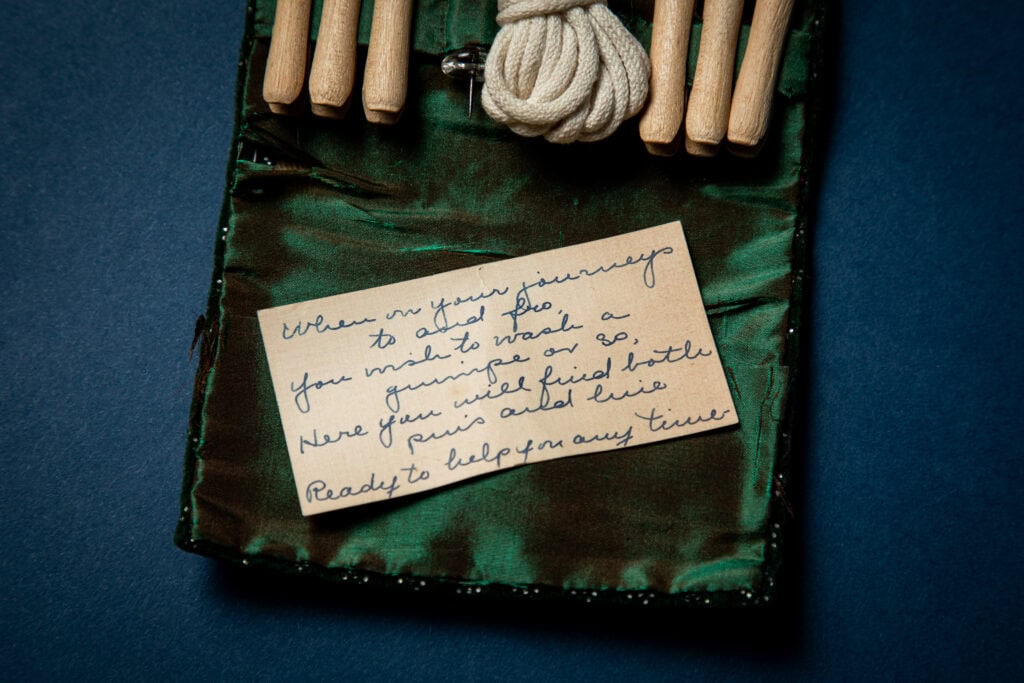 When on your journeys
to and fro,
You wish to wash a
guimpe or so,
Here you will find both
pins and line
Ready to help you any time